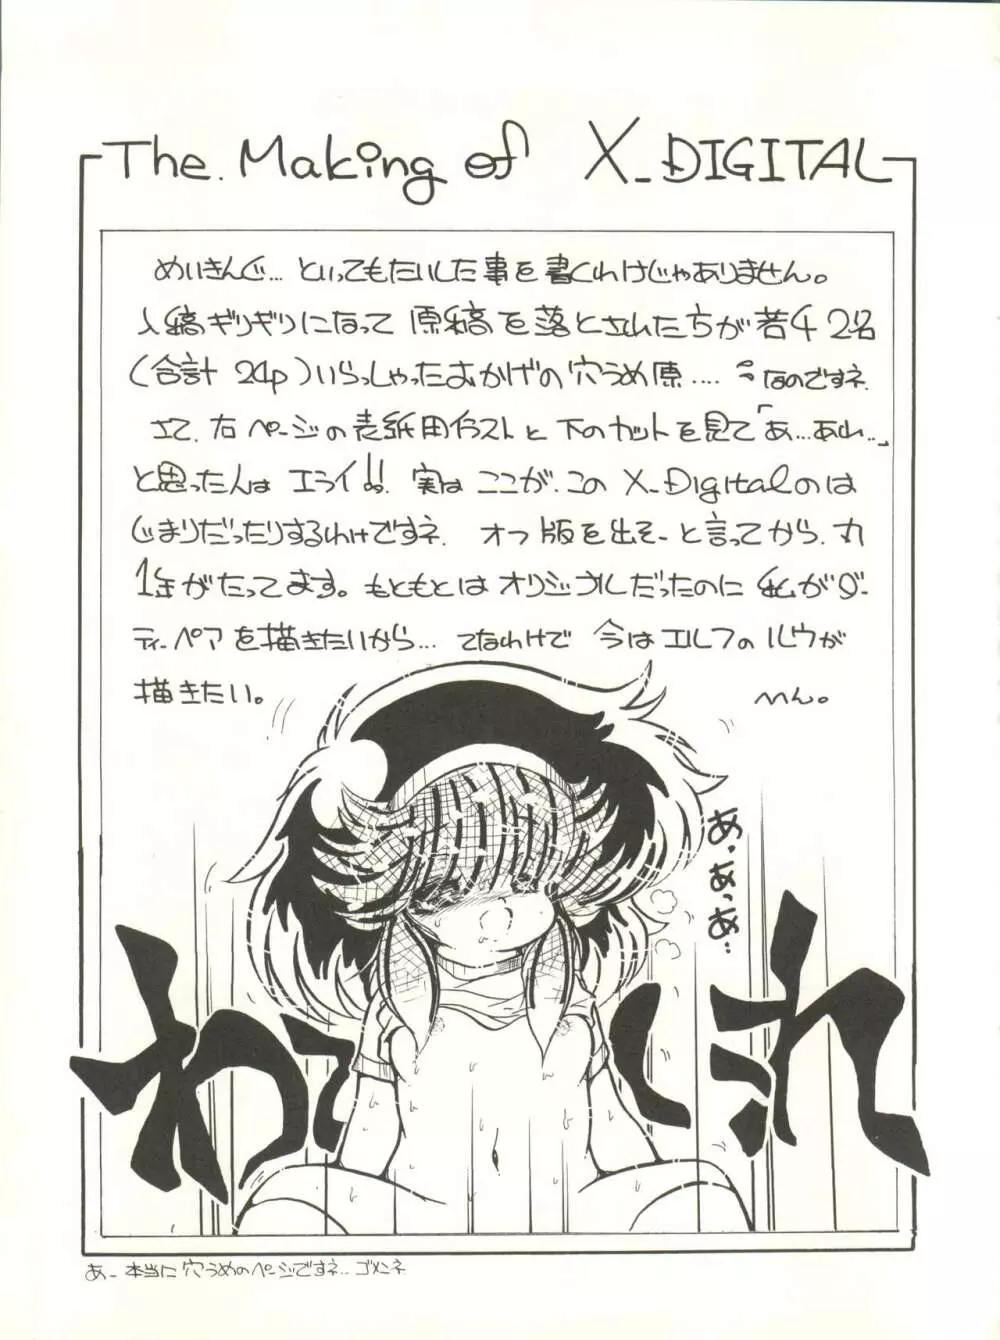 The. Making of X_DIGITAL
めいきんぐ… といってもたいした事を書くわけじゃありません。
入稿ギリギリになって 原稿を落とされた方が若干2名
(合計 24p)いらっしゃったおかげの穴うめ原‥‥ なのですネ.
さて. 右ページの表紙用イラストと下のカットを見て「あ…あれ…」
と思った人は エライ!! 実は ここが.この X_Digitalのは
じまりだったりするわけですネ. オフ版を出そーと言ってから.丸
1年がたってます。もともとは オリジナルだったのに 私がダー
ティーペアを描きたいから… てなわけで 今はエルフのルウが
描きたい。 へん。
あ、あっあ…
あ- 本当に穴うめのページですネ… ゴメンネ